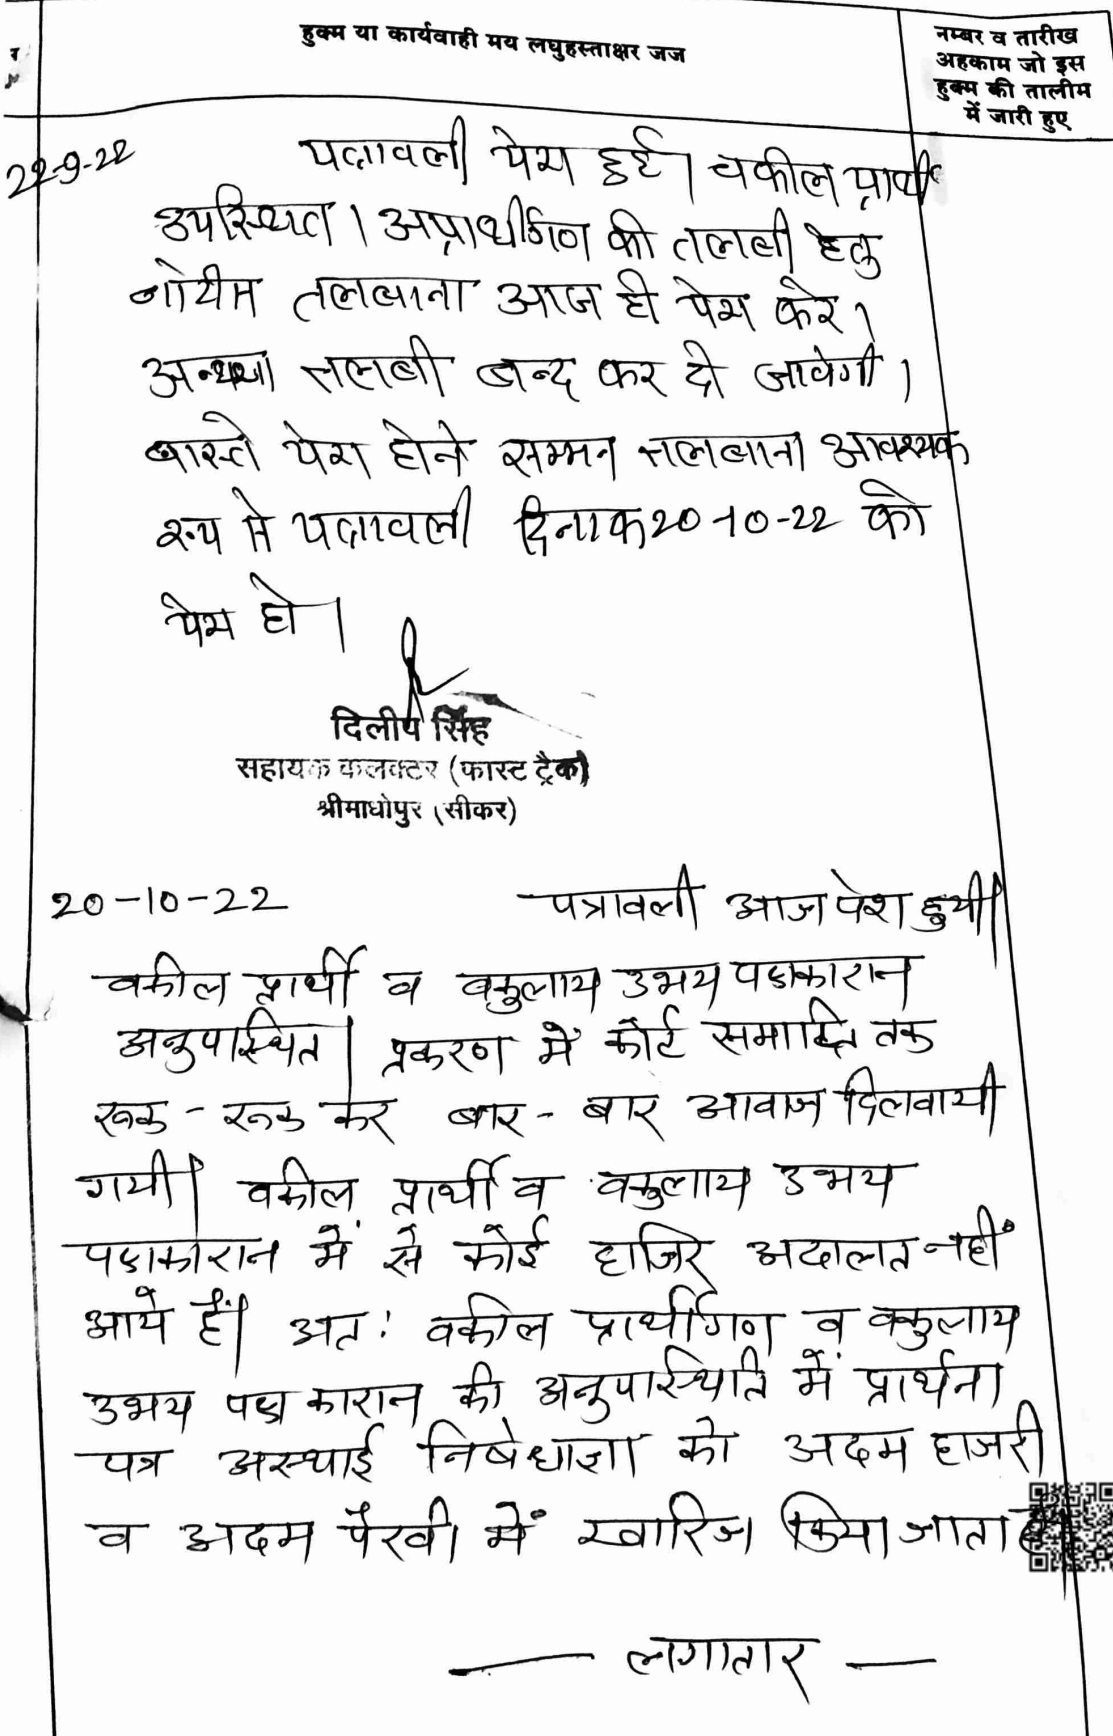 हुक्म या कार्यवाही मय लघुहस्ताक्षर जज
नम्बर व तारीख
अहकाम जो इस
हुक्म की तालीम
में जारी हुए
22-9-22 पत्रावली पेश हुई। वकील प्रार्थी
उपस्थित। अप्रार्थीगण की तलबी हेतु
नोटिस तलबाना आज ही पेश करे।
अन्यथा तलबी बन्द कर दी जावेगी।
वास्ते पेश होने सम्मन तलबाना आवश्यक
रूप से पत्रावली दिनाक 20-10-22 को
पेश हो।
दिलीप सिंह
सहायक कलक्टर (फास्ट ट्रैक)
श्रीमाधोपुर (सीकर)
20-10-22 पत्रावली आज पेश हुयी।
वकील प्रार्थी व वकुलाय उभय पक्षकारान
अनुपस्थित। प्रकरण में कोर्ट समाप्ति तक
रूक-रूक कर बार-बार आवाज दिलवायी
गयी। वकील प्रार्थी व वकुलाय उभय
पक्षकारान में से कोई हाजिर अदालत नहीं
आये हैं। अत: वकील प्रार्थीगण व वकुलाय
उभय पक्षकारान की अनुपस्थिति में प्रार्थना
पत्र अस्थाई निषेधाज्ञा को अदम हाजरी
व अदम पैरवी में खारिज किया जाता है।
— लगातार —